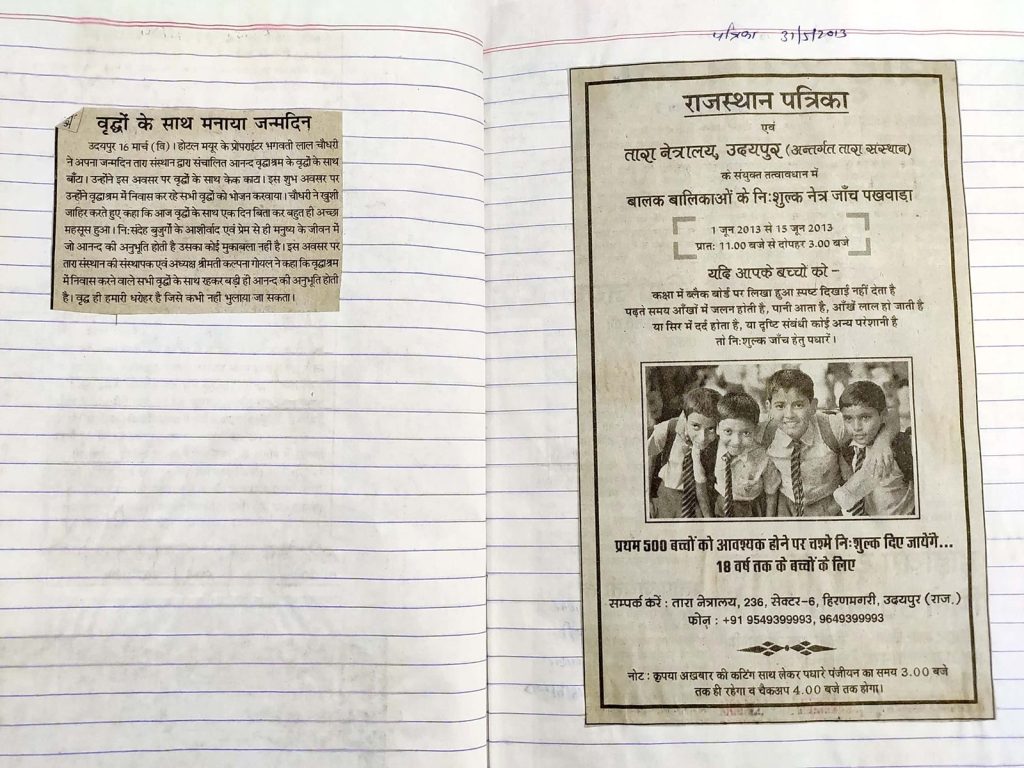 वृद्धों के साथ मनाया जन्मदिन
उदयपुर 16 मार्च (वि)। होटल मयूर के प्रोपराईटर भगवती लाल चौधरी
ने अपना जन्मदिन तारा संस्थान द्वारा संचालित आनन्द वृद्धाश्रम के वृद्धों के साथ
बाँटा। उन्होंने इस अवसर पर वृद्धों के साथ केक काटा। इस शुभ अवसर पर
उन्होंने वृद्धाश्रम में निवास कर रहे सभी वृद्धों को भोजन करवाया। चौधरी ने खुशी
जाहिर करते हुए कहा कि आज वृद्धों के साथ एक दिन बिता कर बहुत ही अच्छा
महसूस हुआ। नि:संदेह बुजुर्गो के आशीर्वाद एवं प्रेम से ही मनुष्य के जीवन में
जो आनन्द की अनुभूति होती है उसका कोई मुकाबला नहीं है। इस अवसर पर
तारा संस्थान की संस्थापक एवं अध्यक्ष श्रीमती कल्पना गोयल ने कहा कि वृद्धाश्रम
में निवास करने वाले सभी वृद्धों के साथ रहकर बड़ी ही आनन्द की अनुभूति होती
है। वृद्ध ही हमारी धरोहर है जिसे कभी नहीं भुलाया जा सकता।
पत्रिका 31/5/2013
राजस्थान पत्रिका
एवं
तारा नेत्रालय, उदयपुर (अन्तर्गत तारा संस्थान)
के संयुक्त तत्वावधान में
बालक बालिकाओं के नि:शुल्क नेत्र जाँच पखवाड़ा
1 जून 2013 से 15 जून 2013
प्रात: 11.00 बजे से दोपहर 3.00 बजे
यदि आपके बच्चों को -
कक्षा में ब्लैक बोर्ड पर लिखा हुआ स्पष्ट दिखाई नहीं देता है
पढ़ते समय आँखों में जलन होती है, पानी आता है, आँखें लाल हो जाती है
या सिर में दर्द होता है, या दृष्टि संबंधी कोई अन्य परेशानी है
तो नि:शुल्क जाँच हेतु पधारें।
प्रथम 500 बच्चों को आवश्यक होने पर चश्मे निःशुल्क दिए जायेंगे...
18 वर्ष तक के बच्चों के लिए
सम्पर्क करें : तारा नेत्रालय, 236, सेक्टर-6, हिरणमगरी, उदयपुर (राज.)
फोन : +91 9549399993, 9649399993
नोट : कृपया अखबार की कटिंग साथ लेकर पधारे पंजीयन का समय 3.00 बजे
तक ही रहेगा व चैकअप 4.00 बजे तक होगा।